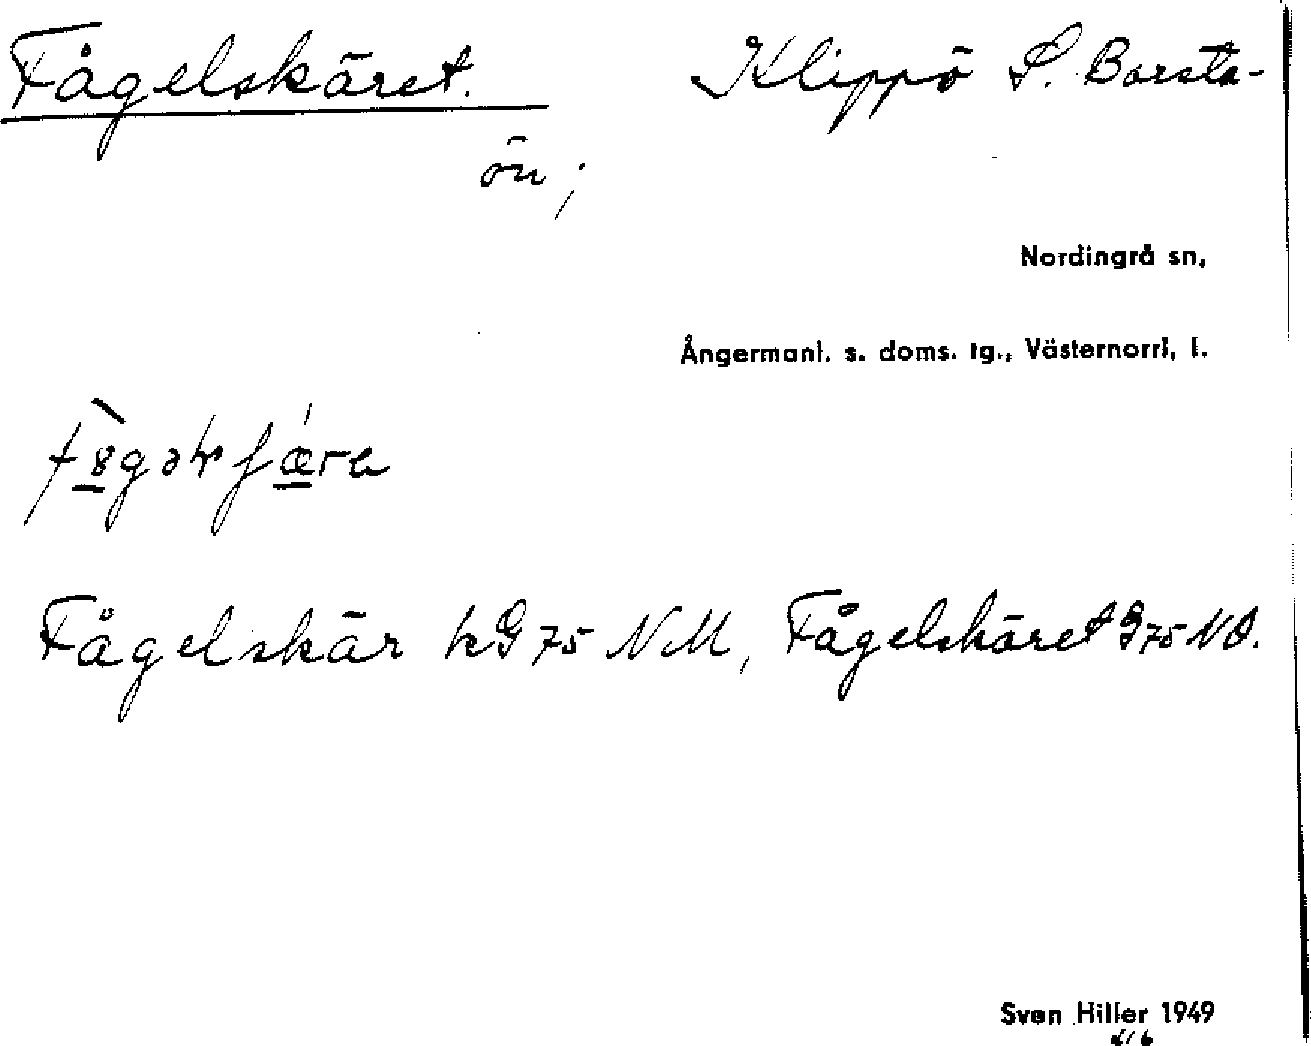 Fågelskäret. Klippö S. Barsta-
ön;
Nordingrå sn,
Ångermanl. s. doms. tg., Västernorrl, l.
Fågelskär kG 75 NM, Fågelskäret G 75 NO.
Sven Hiller 1949